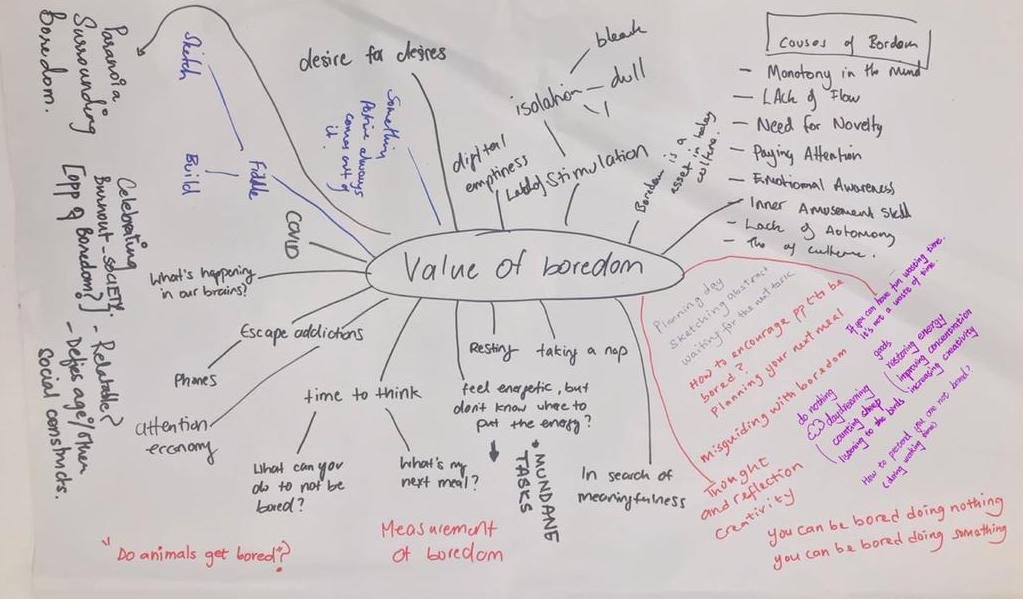 Paranoia
Surrounding
Boredom.
Sketch
Build
Fiddle
desire for desires
Something
Positive always
comes out of
it.
digital
emptiness
isolation
bleak
dull
Lack of Stimulation
Boredom is a
asset in today
culture.
Causes of Bordem
- Monotony in the Mind
- LAck of Flow
- Need for Novelty
- Paying Attention
- Emotional Awareness
- Inner Amusement Skill
- Lack of Autonomy
- The of culture.
Value of boredom
COVID
What's happening
in our brains?
Celebrating
Burnout-society.
[opp of Boredom?]
- Relatable?
- Defies age/other
social constructs.
Escape addictions
Phones
attention
economy
time to think
What can you
do to not be
bored?
What's my
next meal?
Resting
taking a nap
feel energetic, but
don't know where to
put the energy?
• MUNDANE
TASKS
In search of
meaningfulness
Planning day
Sketching abstract
waiting for the next task
How to encourage PPL to be
bored?
Planning your next meal
misguiding with boredom
Thought
and reflection
creativity
If you can have fun wasting time.
It's not a waste of time.
goals
restoring energy
improving concentration
increasing creativity
do nothing
daydreaming
counting sheep
listening to the birds
How to pretend you are not bored?
(doing wasting time)
you can be bored doing nothing
you can be bored doing something
Do animals get bored?
Measurement
of boredom